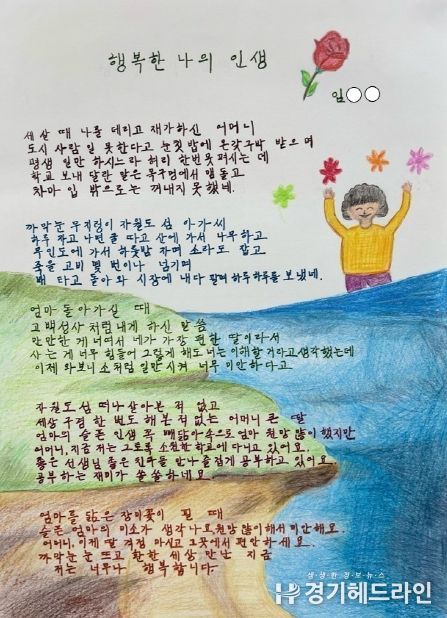 행복한 나의 인생
임○○
세살 때 나를 데리고 재가하신 어머니
도시 사람 일 못한다고 눈칫밥에 온갖구박 받으며
평생 일만 하시느라 허리 한번 못 펴시는 데
학교 보내 달란 말은 목구멍에서 맴돌고
차마 입 밖으로는 꺼내지 못했네.
까막눈 무지렁이 자월도 섬 아가씨
하루 자고 나면 굴 따고 산에 가서 나무하고
무인도에 가서 하룻밤 자며 소라도 잡고
죽을 고비 몇 번이나 넘기며
배 타고 돌아와 시장에 내다 팔며 하루하루를 보냈네.
엄마 돌아가실 때
고백성사처럼 내게 하신 말씀
만만한 게 너여서 네가 가장 편한 딸이라서
사는 게 너무 힘들어 그렇게 해도 너는 이해할거라고 생각했는데
이제 와보니 소처럼 일만시켜 너무 미안하다고
자월도 섬 떠나 살아본 적 없고
세상 구경 한 번도 해본 적 없는 어머니 큰 딸
엄마의 슬픈 인생 꼭 빼닮아 속으로 엄마 원망 많이 했지만
어머니, 지금 저는 그토록 소원한 학교에 다니고 있어요.
좋은 선생님 좋은 친구들 만나 즐겁게 공부하고 있어요.
공부하는 재미가 쏠쏠하네요.
엄마를 닮은 장미꽃이 필 때
슬픈 엄마의 미소가 생각나요 원망 많이해서 미안해요.
어머니, 이제 딸 걱정 마시고 그곳에서 편안하세요.
까막눈 뜨고 환한 세상 만난 지금
저는 너무나 행복합니다.
생생한정보뉴스
경기헤드라인